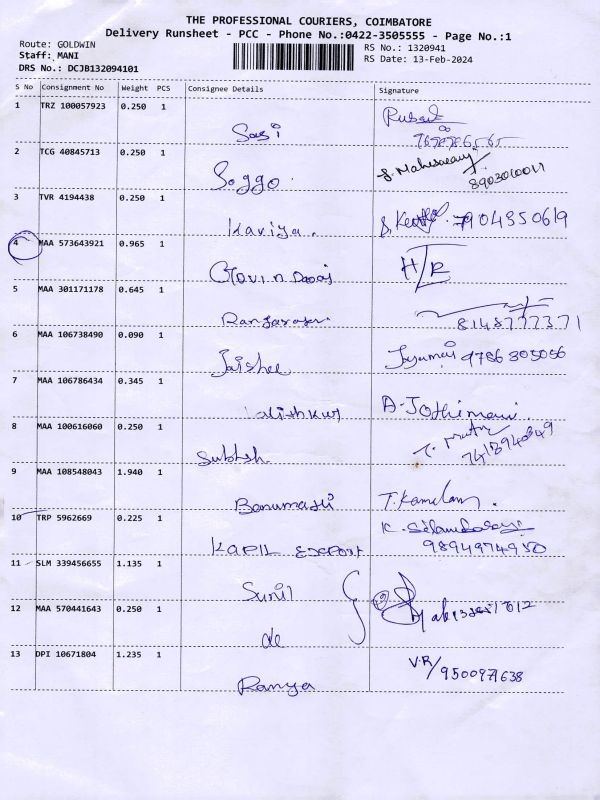 THE PROFESSIONAL COURIERS, COIMBATORE
Delivery Runsheet - PCC - Phone No.:0422-3505555 - Page No.:1
Route: GOLDWIN
RS No.: 1320941
Staff: MANI
RS Date: 13-Feb-2024
DRS No.: DCJB132094101
S No Consignment No Weight PCS Consignee Details Signature
1 TRZ 100057923 0.250 1
Sasi
2 TCG 40845713 0.250 1
Soggo.
3 TVR 4194438 0.250 1
Kaviya. 7904350619
4 MAA 573643921 0.965 1
H/R
5 MAA 301171178 0.645 1
8148777371
6 MAA 106738490 0.090 1
Jaishee 9786305056
7 MAA 106786434 0.345 1
A-Jothimani.
8 MAA 100616060 0.250 1
Subhsh
9 MAA 108548043 1.940 1
Banumathi T.Kamalam.
10 TRP 5962669 0.225 1
KAPIL EXPORT 9894974950
11 SLM 339456655 1.135 1
Sunil
12 MAA 570441643 0.250 1
de
13 DPI 10671804 1.235 1
V.R/9500971638
Ramya